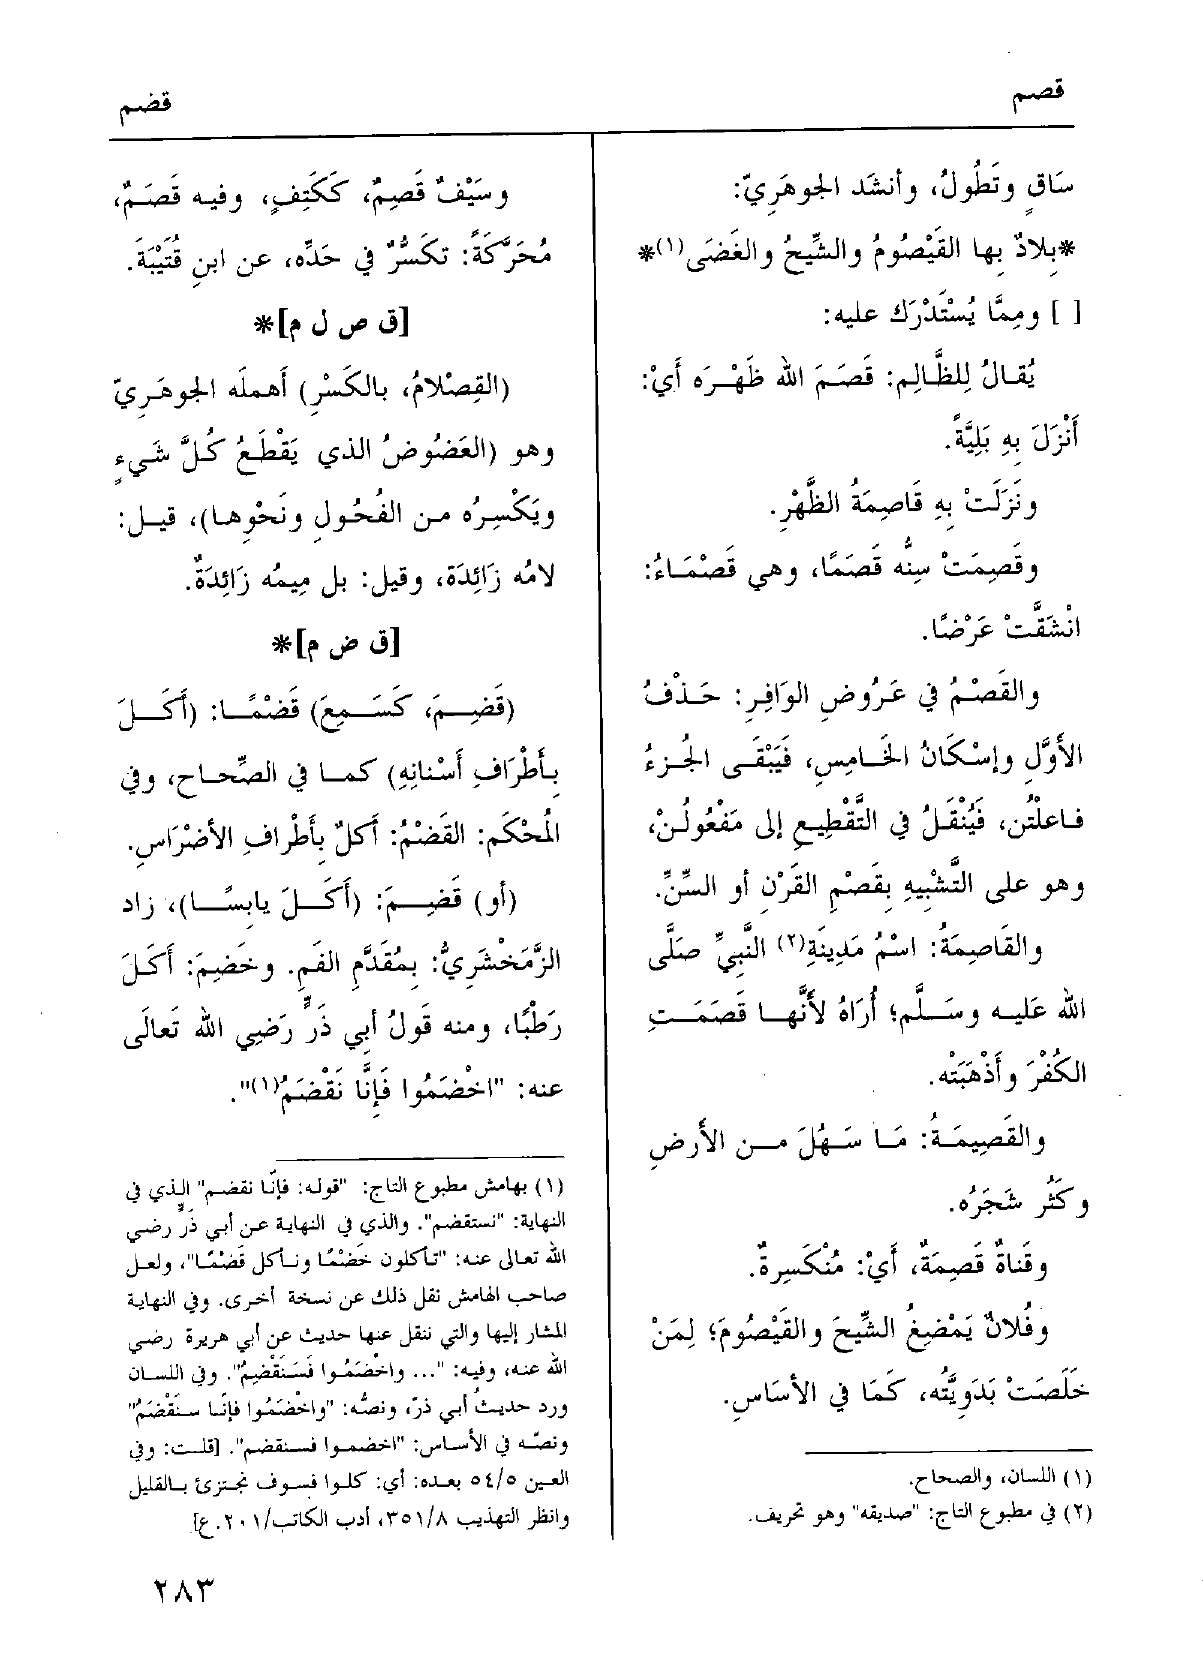 قصم
قضم
سَاقٍ وتَطُولُ، وأنشد الجوهَرِيّ:
*بِلادٌ بِها القَيْصُومُ والشِّيحُ والغَضَى(١)*
[ ] ومِمَّا يُسْتَدْرَك عليه:
يُقالُ لِلظَّالِم: قَصَمَ الله ظَهْرَه أَيْ:
أَنْزَلَ بِهِ بَلِيَّةً.
ونَزَلَتْ بِهِ قَاصِمَةُ الظَّهْرِ.
وقَصِمَتْ سِنُّه قَصَمًا، وهي قَصْمَاءُ:
انْشَقَّتْ عَرْضًا.
والقَصْمُ في عَرُوضِ الوَافِرِ: حَذْفُ
الأوَّلِ وإسْكَانُ الخَامِسِ، فَيَبْقَى الجُزءُ
فاعلْتُن، فَيُنْقَلُ في التَّقْطِيعِ إلى مَفْعُولُنْ،
وهو على التَّشْبِيهِ بِقَصْمِ القَرْنِ أو السِّنِّ.
والقَاصِمَةُ: اسْمُ مَدِينَةِ(٢) النَّبِيِّ صَلَّى
الله عَليه وسَلَّم؛ أُرَاهُ لأنَّها قَصَمَتِ
الكُفْرَ وأذْهَبَتْه.
والقَصِيمَةُ: مَا سَهُلَ من الأرضِ
وكَثُر شَجَرُه.
وقَناةٌ قَصِمَةٌ، أَيْ: مُنْكَسِرةٌ.
وفُلانٌ يَمْضِغُ الشِّيحَ والقَيْصُومَ؛ لِمَنْ
خَلَصَتْ بَدَوِيَّتُه، كَمَا في الأسَاسِ.
(١) اللسان، والصحاح.
(٢) في مطبوع التاج: "صديقه" وهو تحريف.
وسَيْفٌ قَصِمٌ، كَكَتِفٍ، وفيه قَصَمٌ،
مُحَرَّكَةً: تكَسُّرٌ في حَدِّه، عن ابنِ قُتَيْبَةَ.
[ق ص ل م]*
(القِصْلامُ، بالكَسْرِ) أهملَه الجوهَرِيّ
وهو (العَضُوضُ الذي يَقْطَعُ كُلَّ شَيءٍ
ويَكْسِرُه من الفُحُولِ ونَحْوِها)، قيل:
لامُه زَائِدَة، وقيل: بل مِيمُه زَائِدَةٌ.
[ق ض م]*
(قَضِمَ، كَسَمِعَ) قَضْمًا: (أَكَلَ
بِأَطْرَافِ أسْنانِهِ) كما في الصِّحاحِ، وفي
المُحْكَم: القَضْمُ: أكلٌ بِأَطْرافِ الأضْرَاسِ.
(أو) قَضِمَ: (أَكَلَ يابِسًا)، زاد
الزَّمَخْشَرِيُّ: بِمُقَدَّمِ الفَمِ. وخَضِمَ: أَكَلَ
رَطْبًا، ومنه قَولُ أبي ذَرٍّ رَضِي الله تَعالَى
عنه: "اخْضَمُوا فَإِنَّا نَقْضَمُ(١)".
(١) بهامش مطبوع التاج: "قوله: فإنّا نقضم" الذي في
النهاية: "نستقضم". والذي في النهاية عن أبي ذَرٍّ رضي
الله تعالى عنه: "تأكلون خَضْمًا ونأكل قَضْمًا"، ولعل
صاحب الهامش نقل ذلك عن نسخة أخرى. وفي النهاية
المشار إليها والتي ننقل عنها حديث عن أبي هريرة رضي
الله عنه، وفيه: "... واخْضَمُوا فَسَنَقْضِمُ". وفي اللسان
ورد حديثُ أبي ذرّ، ونصُّه: "واخْضَمُوا فإنا سنَقْضَمُ"
ونصّه في الأساس: "اخضموا فسنقضم". [قلت: وفي
العين ٥٤/٥ بعده: أي: كلوا فسوف نجتزئ بالقليل
وانظر التهذيب ٣٥١/٨، أدب الكاتب/٢٠١.ع].
٢٨٣